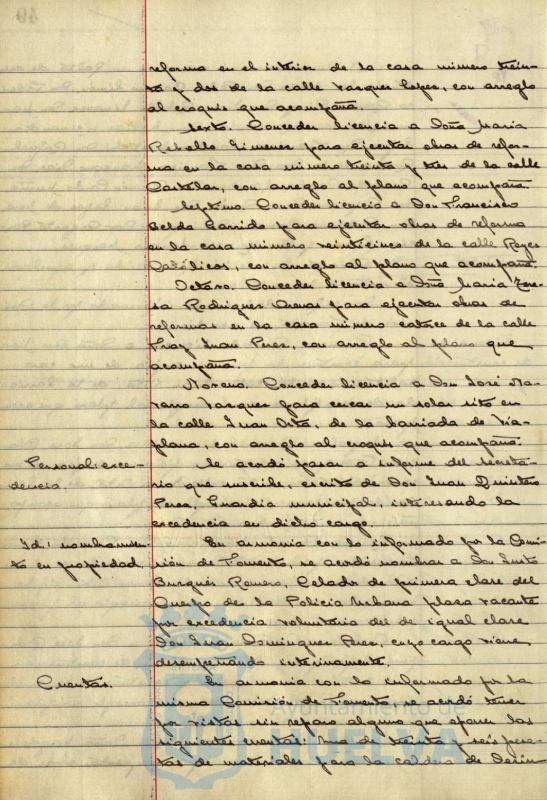 reforma en el interior de la casa número trein-
ta y dos de la calle Vazquez Lopez, con arreglo
al croquis que acompaña.
Sexto. Conceder licencia a Doña María
Rebollo Jimenez para ejecutar obras de refor-
ma en la casa número treinta y tres de la calle
Castelar, con arreglo al plano que acompaña.
Septimo. Conceder licencia a Don Francisco
Belda Garrido para ejecutar obras de reforma
en la casa número veinticinco de la calle Reyes
Católicos, con arreglo al plano que acompaña.
Octavo. Conceder licencia a Doña María Tere-
sa Rodriguez Cuevas para ejecutar obras de
reformas en la casa número catorce de la calle
Fray Juan Perez, con arreglo al plano que
acompaña.
Noveno. Conceder licencia a Don José Na-
varro Vazquez para cercar un solar sito en
la calle Juan Orta, de la barriada de Via-
plana, con arreglo al croquis que acompaña.
Personal: exce-
dencia.
Se acordó pasar a informe del Secreta-
rio que suscribe, escrito de Don Juan Quintero
Perez, Guardia municipal, interesando la
excedencia en dicho cargo.
Id: nombramien-
to en propiedad.
En armonia con lo informado por la Comi-
sión de Fomento, se acordó nombrar a Don Justo
Burgués Romero, Celador de primera clase del
Cuerpo de la Policia Urbana plaza vacante
por excedencia voluntaria del de igual clase
Don Juan Dominguez Perez, cuyo cargo viene
desempeñando interinamente.
Cuentas.
En armonia con lo informado por la
misma Comisión de Fomento, se acordó tener
por vistas sin reparo alguno que oponer las
siguientes cuentas: Una de treinta y seis pese-
tas de materiales para la caldera de Desin-
Ayuntamiento de
HUELVA